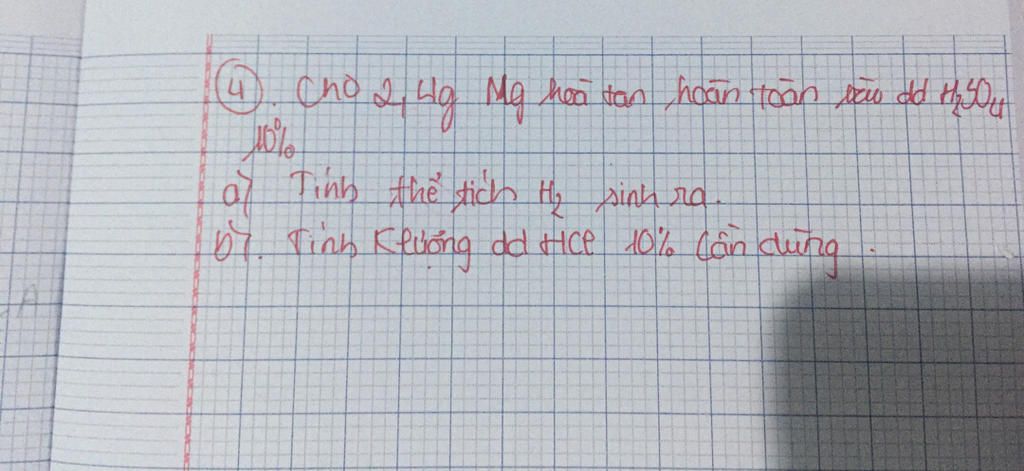 ④. Cho 2,4g Mg hoà tan hoàn toàn vào dd H₂SO₄
10%
a). Tính thể tích H₂ sinh ra.
b). Tính Klượng dd HCl 10% cần dùng.